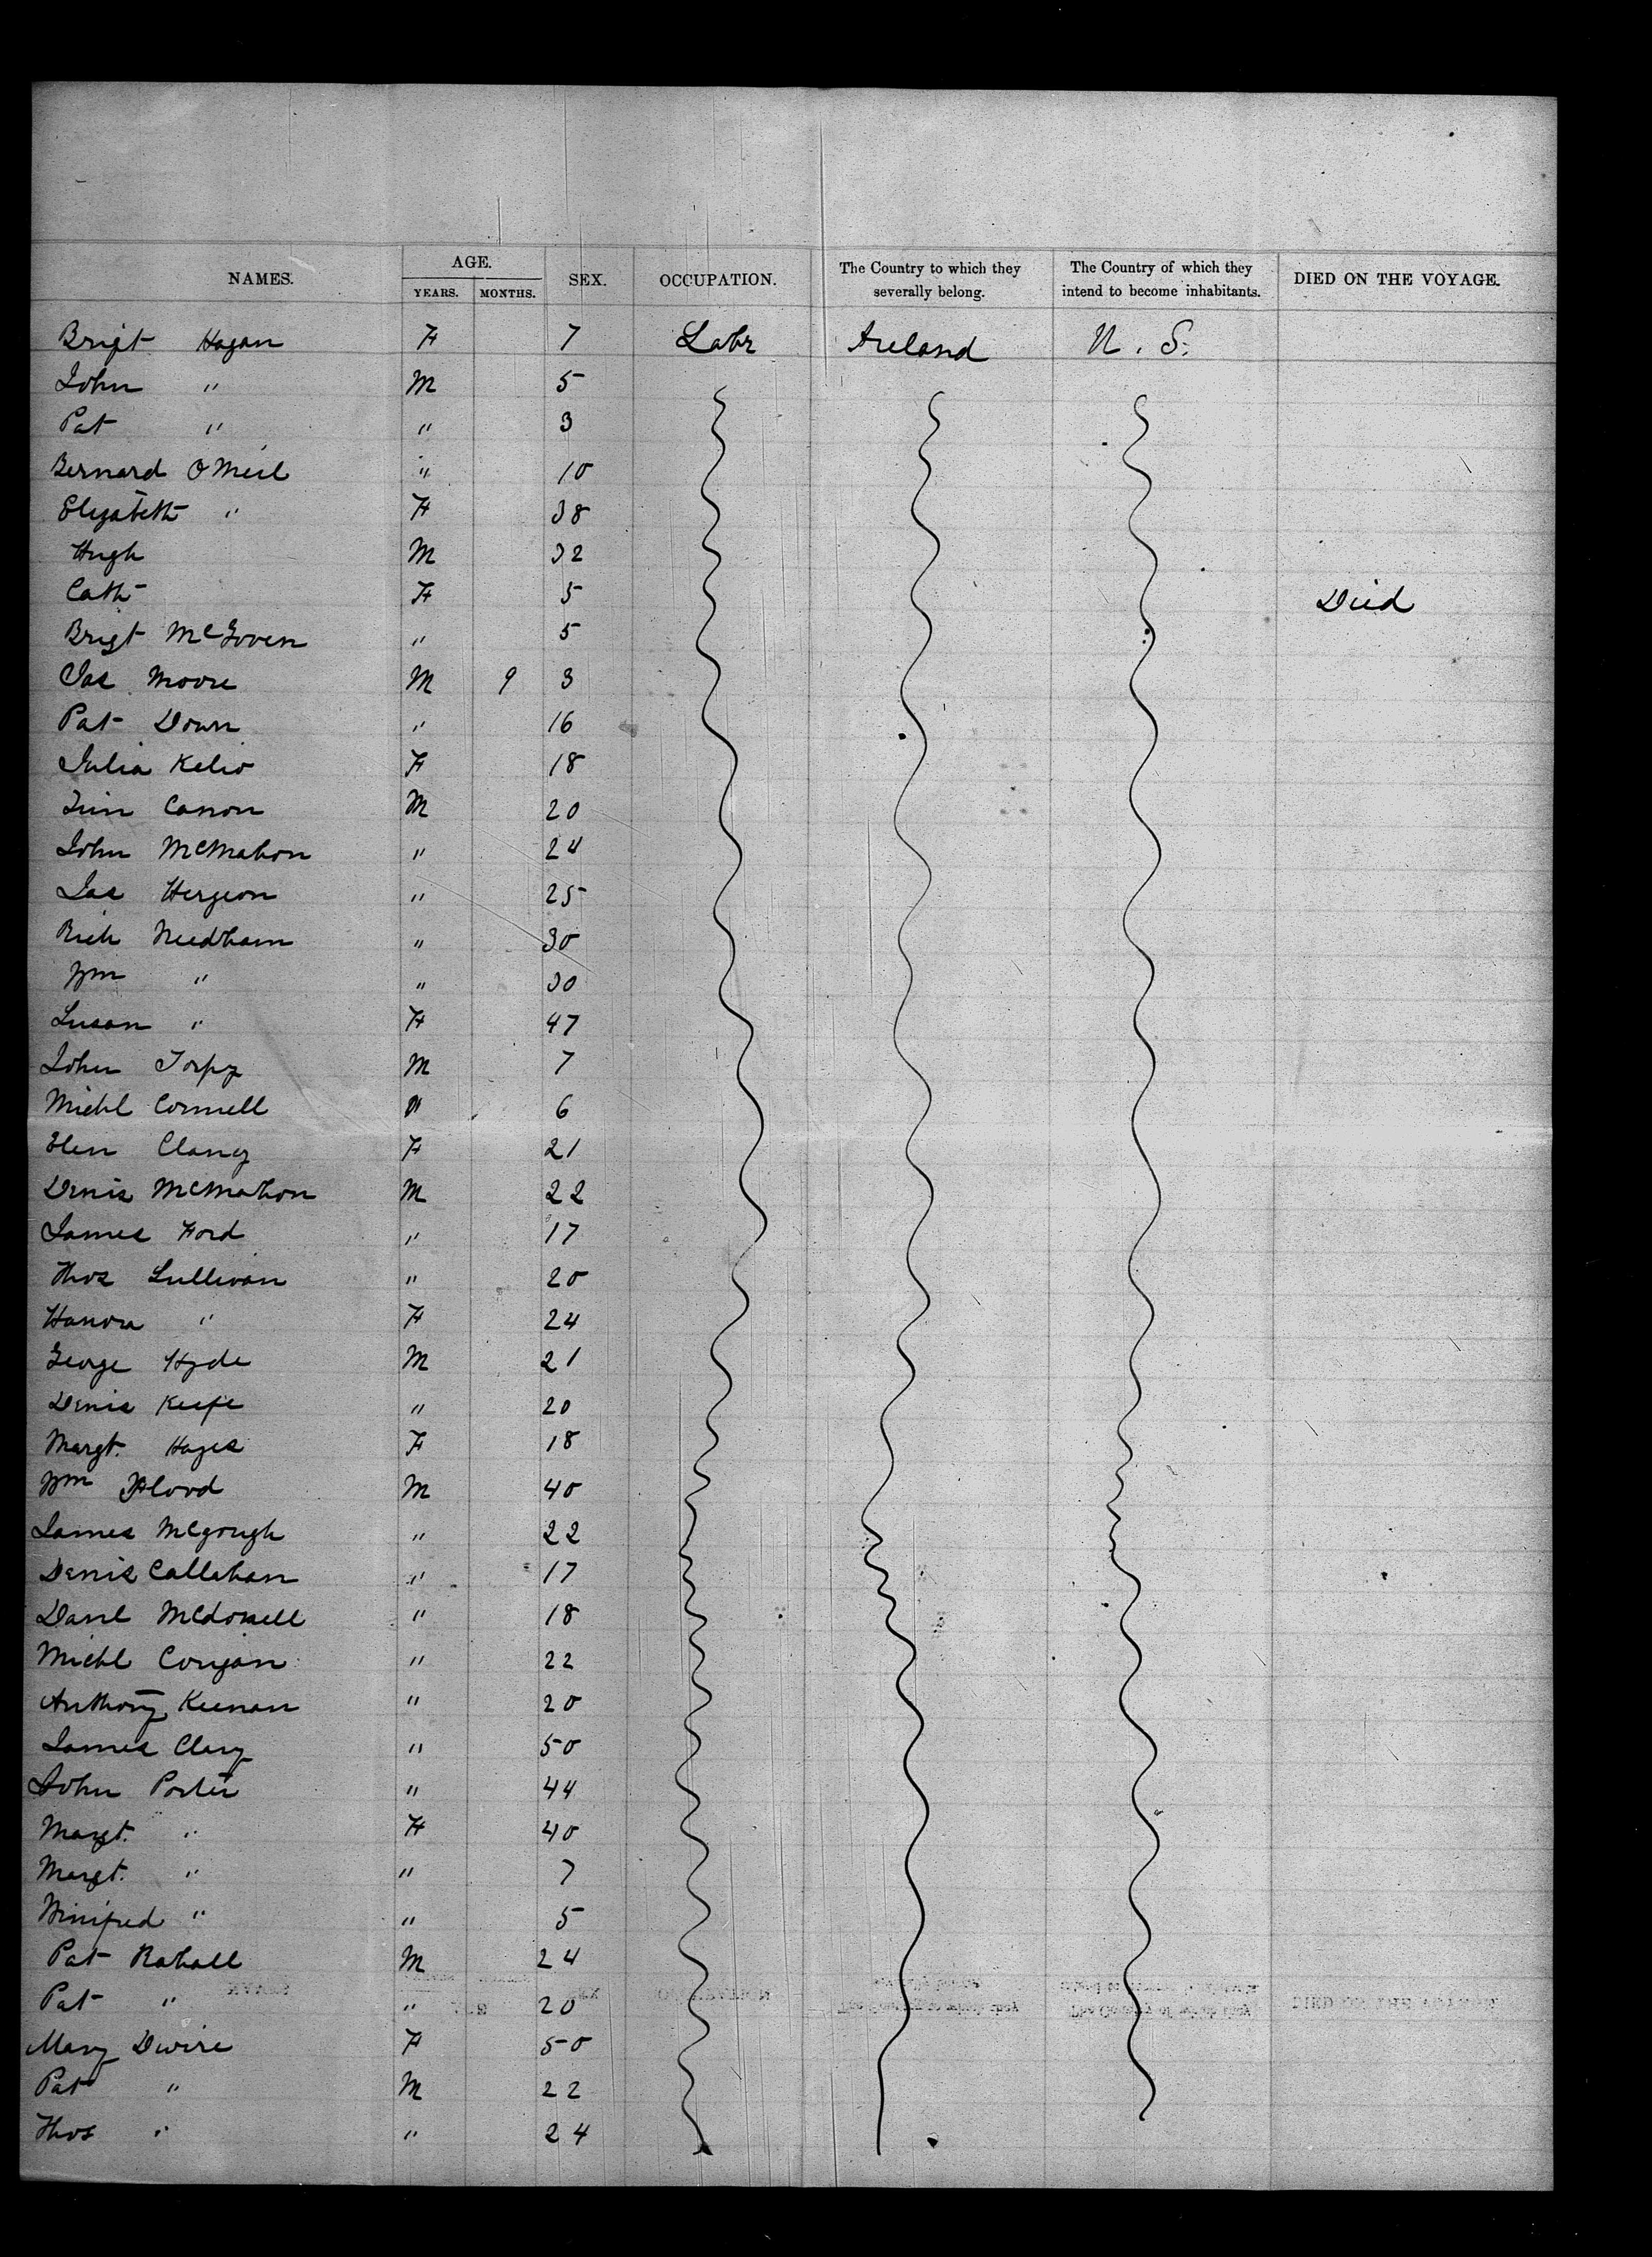 NAMES. AGE. SEX. OCCUPATION. The Country to which they severally belong. The Country of which they intend to become inhabitants. DIED ON THE VOYAGE.
YEARS. MONTHS.
Brigt Hagan F 7 Labr Ireland U. S.
John " M 5
Pat " " 3
Bernard O Neil " 10
Elizabeth " F 38
Hugh M 32
Cath F 5 Died
Brigt McGoven " 5
Jas Moore M 9 3
Pat Down " 16
Julia Kelio F 18
Tim Canon M 20
John McMahon " 24
Jas Hergeon " 25
Rich Needham " 30
Wm " " 30
Susan " F 47
John Torpy M 7
Michl Connell " 6
Elen Clancy F 21
Denis McMahon M 22
James Ford " 17
Thos Sullivan " 20
Hanora " F 24
George Hyde M 21
Denis Keefe " 20
Margt. Hayes F 18
Wm Flood M 40
James McGough " 22
Denis Callahan " 17
Danl McDonell " 18
Michl Corigan " 22
Anthony Keenan " 20
James Clary " 50
John Porter " 44
Margt. " F 40
Margt. " " 7
Winifred " " 5
Pat Rahall M 24
Pat " " 20
Mary Dwire F 50
Pat " M 22
Thos " " 24